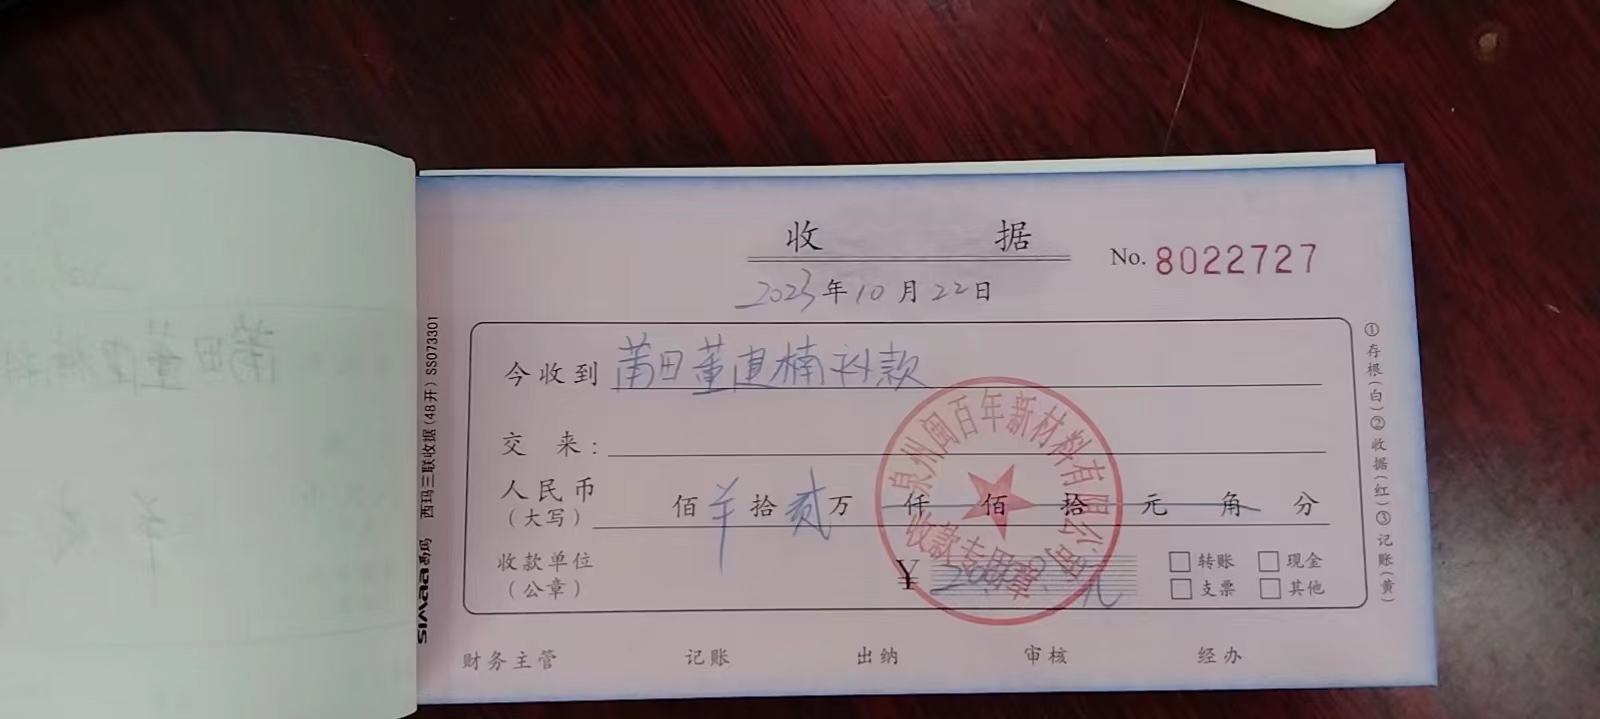 收 据
No. 8022727
2023年10月22日
今收到 莆田董建楠补款
交 来：
人民币（大写） 佰 羊 拾 贰 万 仟 佰 拾 元 角 分
收款单位（公章）
¥
转账 现金
支票 其他
财务主管 记账 出纳 审核 经办
①存根(白)②收据(红)③记账(黄)
simaa 西玛 西玛三联收据(48开) SS073301
泉州闽百年新材料有限公司
收款专用章